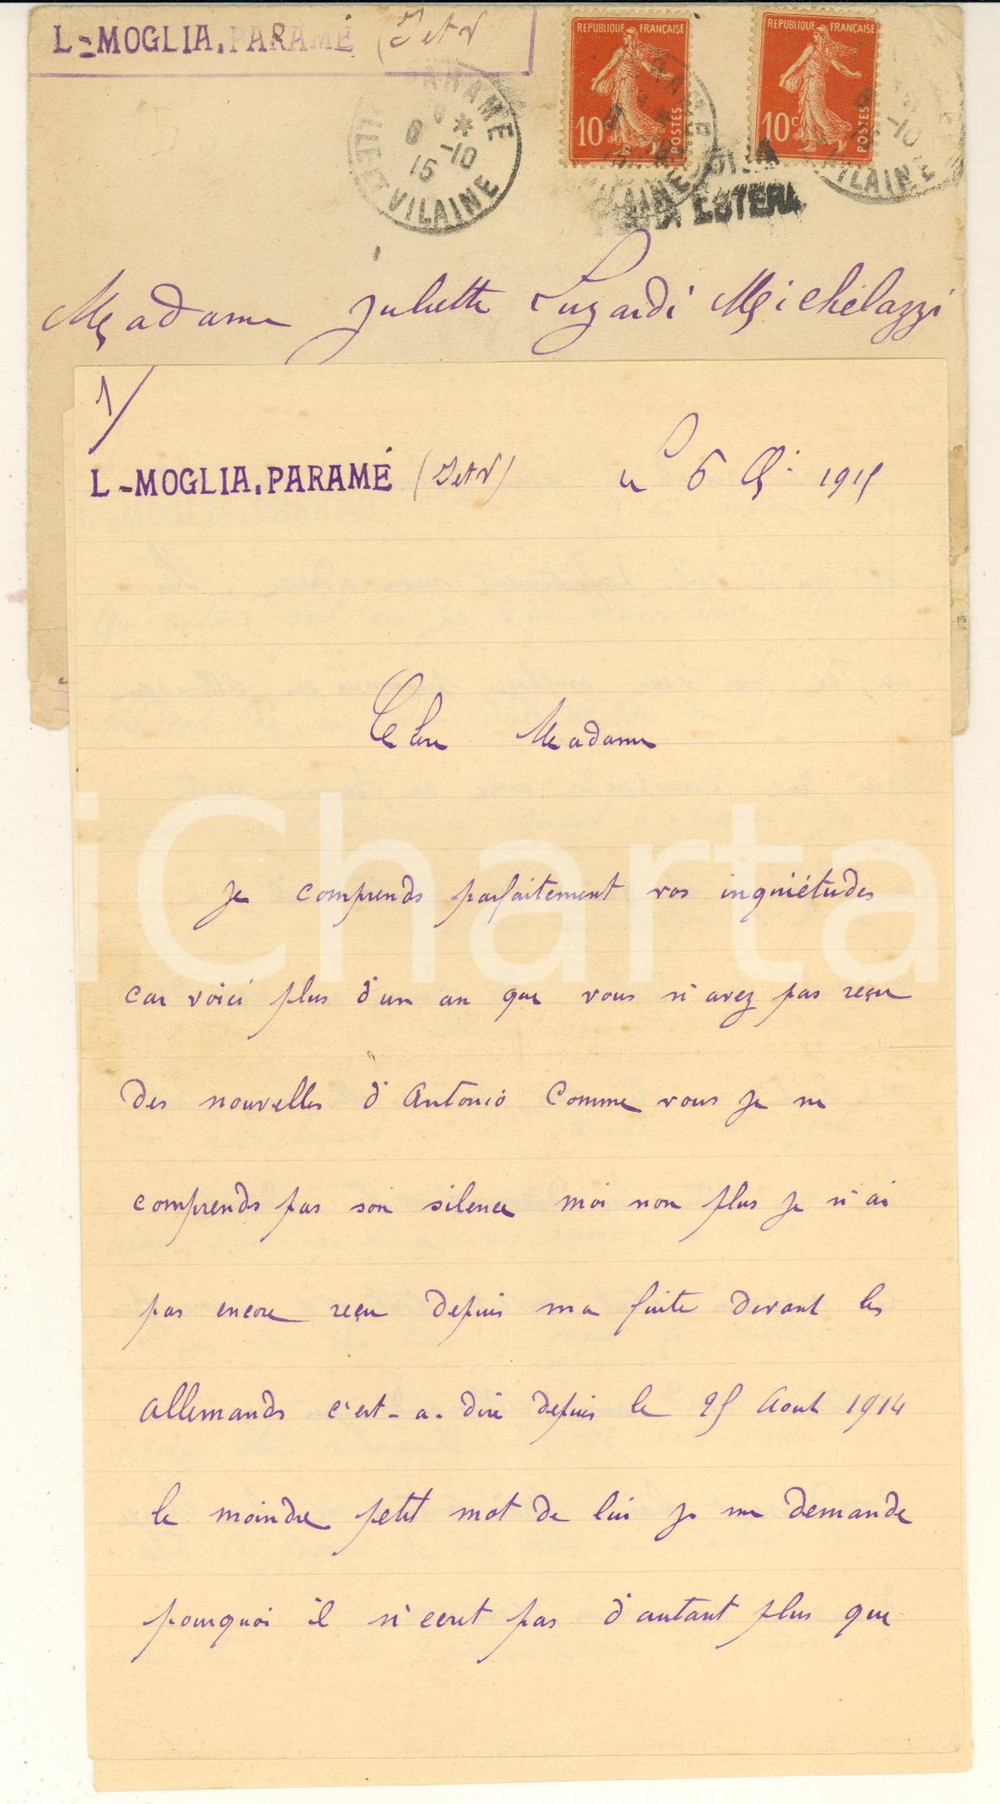 L-MOGLIA.PARAMÉ (I et V
PARAMÉ
8 * -10
15
ILLE ET VILAINE
REPUBLIQUE FRANÇAISE
10c
POSTES
REPUBLIQUE FRANÇAISE
10c
POSTES
VILAINE
ESTERA
Madame Juliette Luzardi Michelazzi
1/
L-MOGLIA.PARAMÉ (I et V)
le 6 1915
Chere Madame
Je comprends parfaitement vos inquiétudes
car voici plus d'un an que vous n'avez pas reçu
des nouvelles d'Antonio Comme vous je ne
comprends pas son silence moi non plus je n'ai
pas encore reçu depuis ma fuite devant les
allemands c'est-a-dire depuis le 25 Aout 1914
le moindre petit mot de lui je me demande
pourquoi il n'ecrit pas d'autant plus que
iCharta